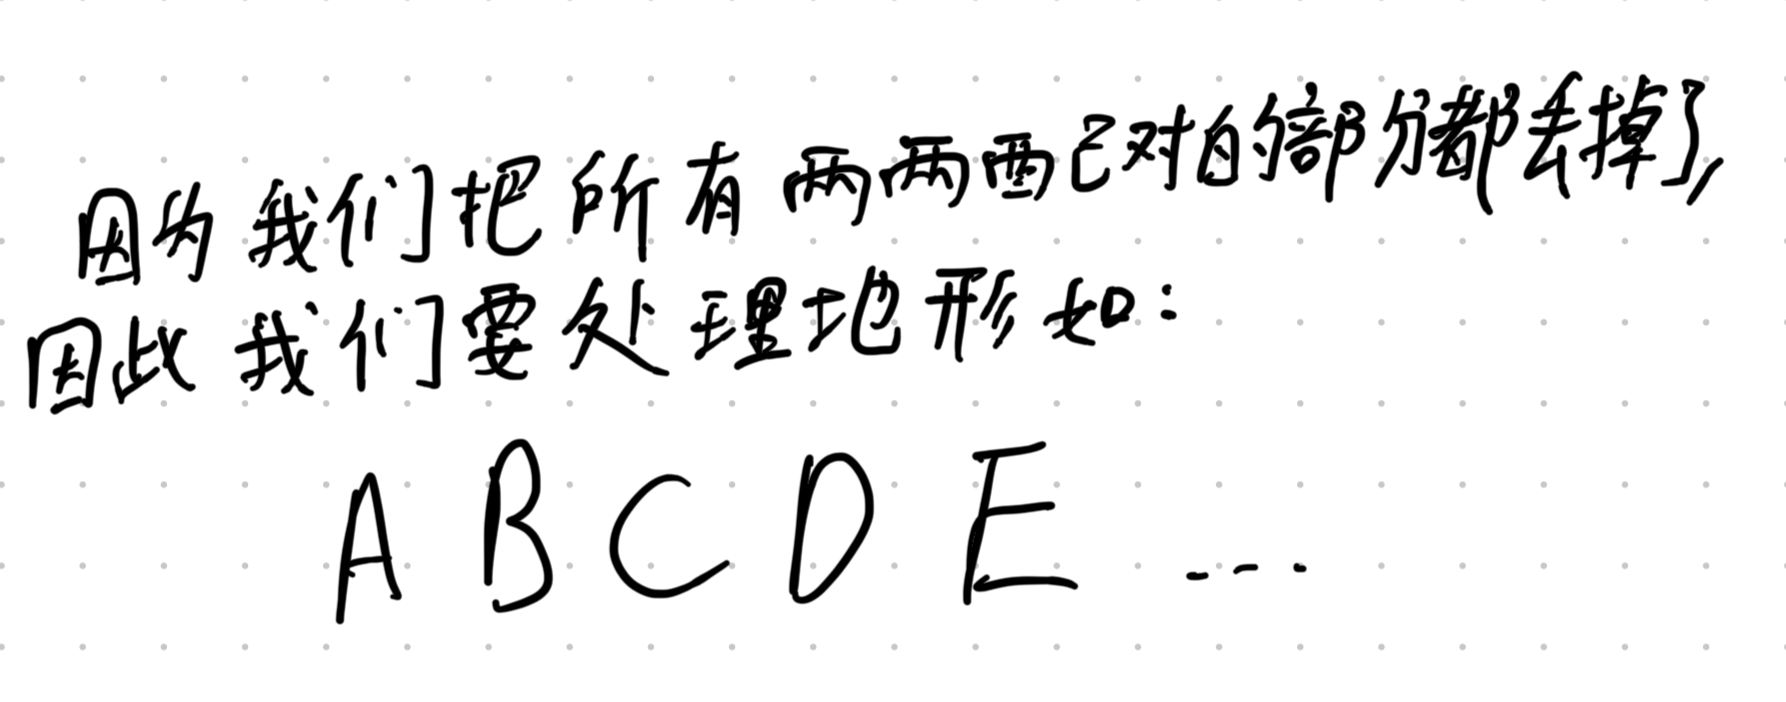 因为我们把所有两两配对的部分都丢掉了,
因此我们要处理地形如:
A B C D E ...